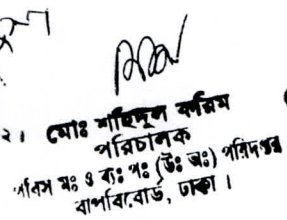 ২। মোঃ শহিদুল করিম
পরিচালক
পবিস মঃ ও ব্যঃ পঃ (উঃ অঃ) পরিদপ্তর
বাপবিবোর্ড, ঢাকা।